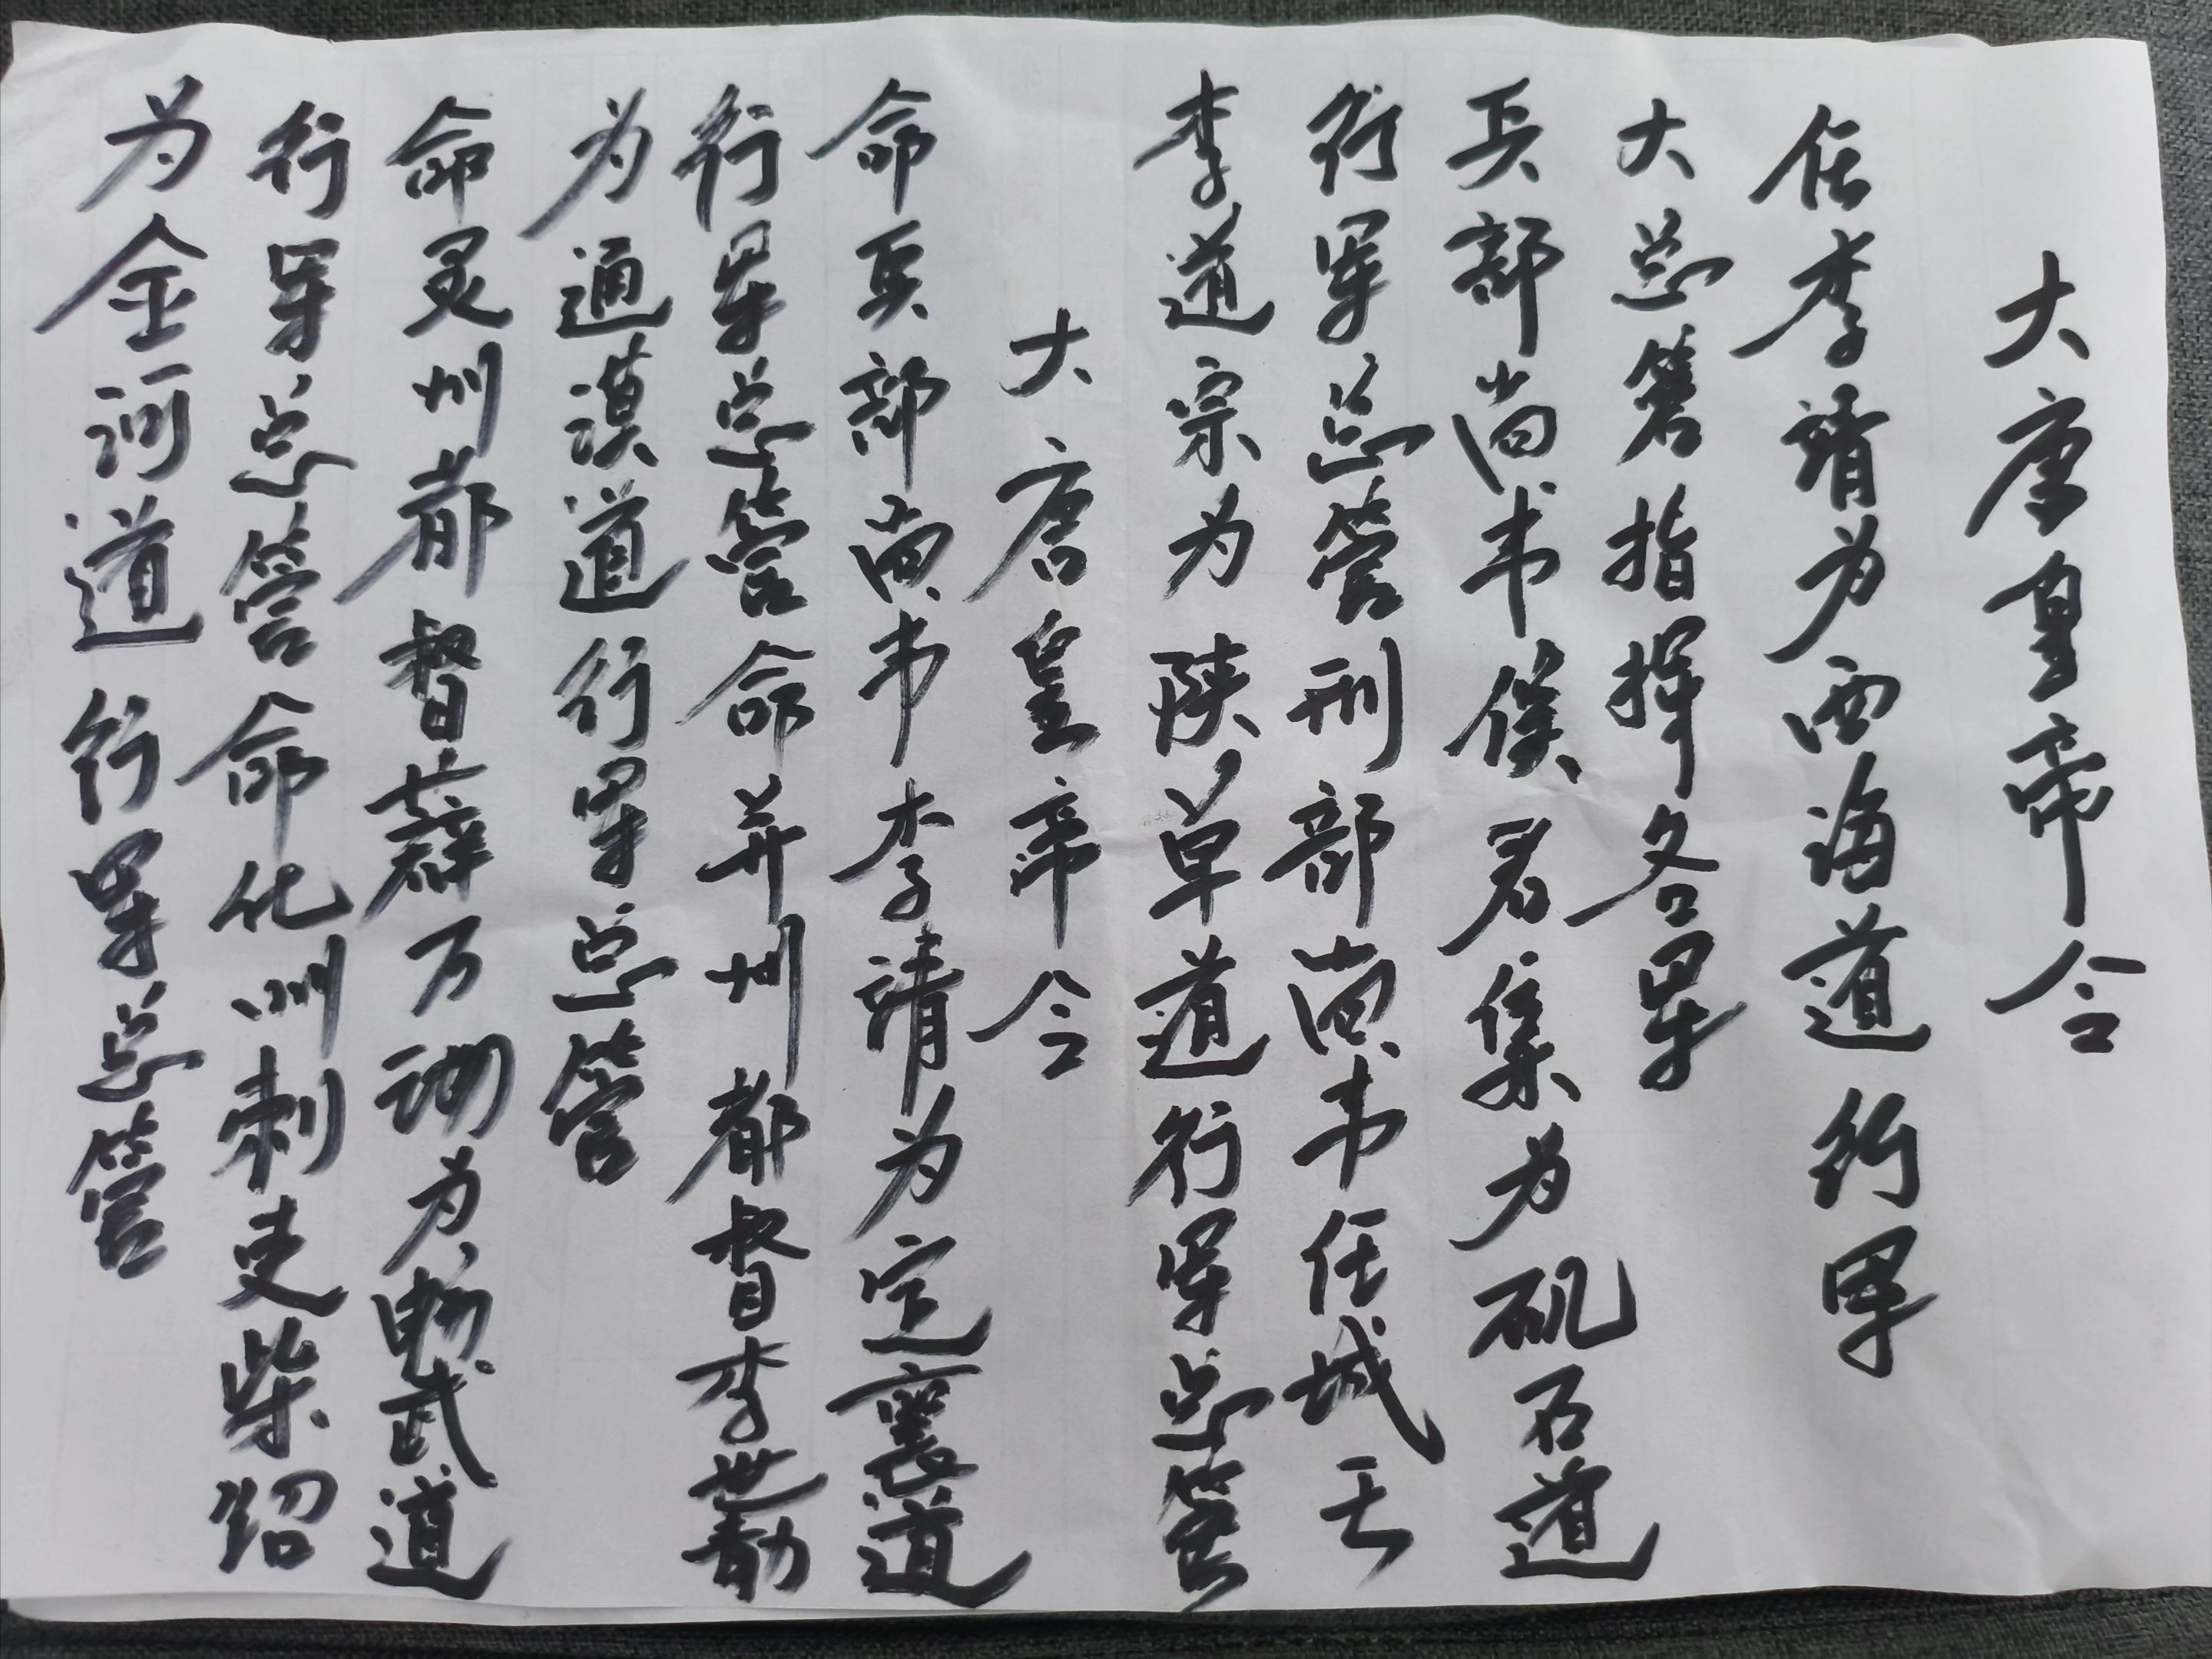 大唐皇帝令
任李靖为西海道行军
大总管指挥各军
兵部尚书侯君集为矶石道
行军总管刑部尚书任城王
李道宗为陕草道行军总管
大唐皇帝令
命兵部尚书李靖为定襄道
行军总管命并州都督李世勣
为通漠道行军总管
命灵州都督薛万彻为畅武道
行军总管命化州刺史柴绍
为金河道行军总管